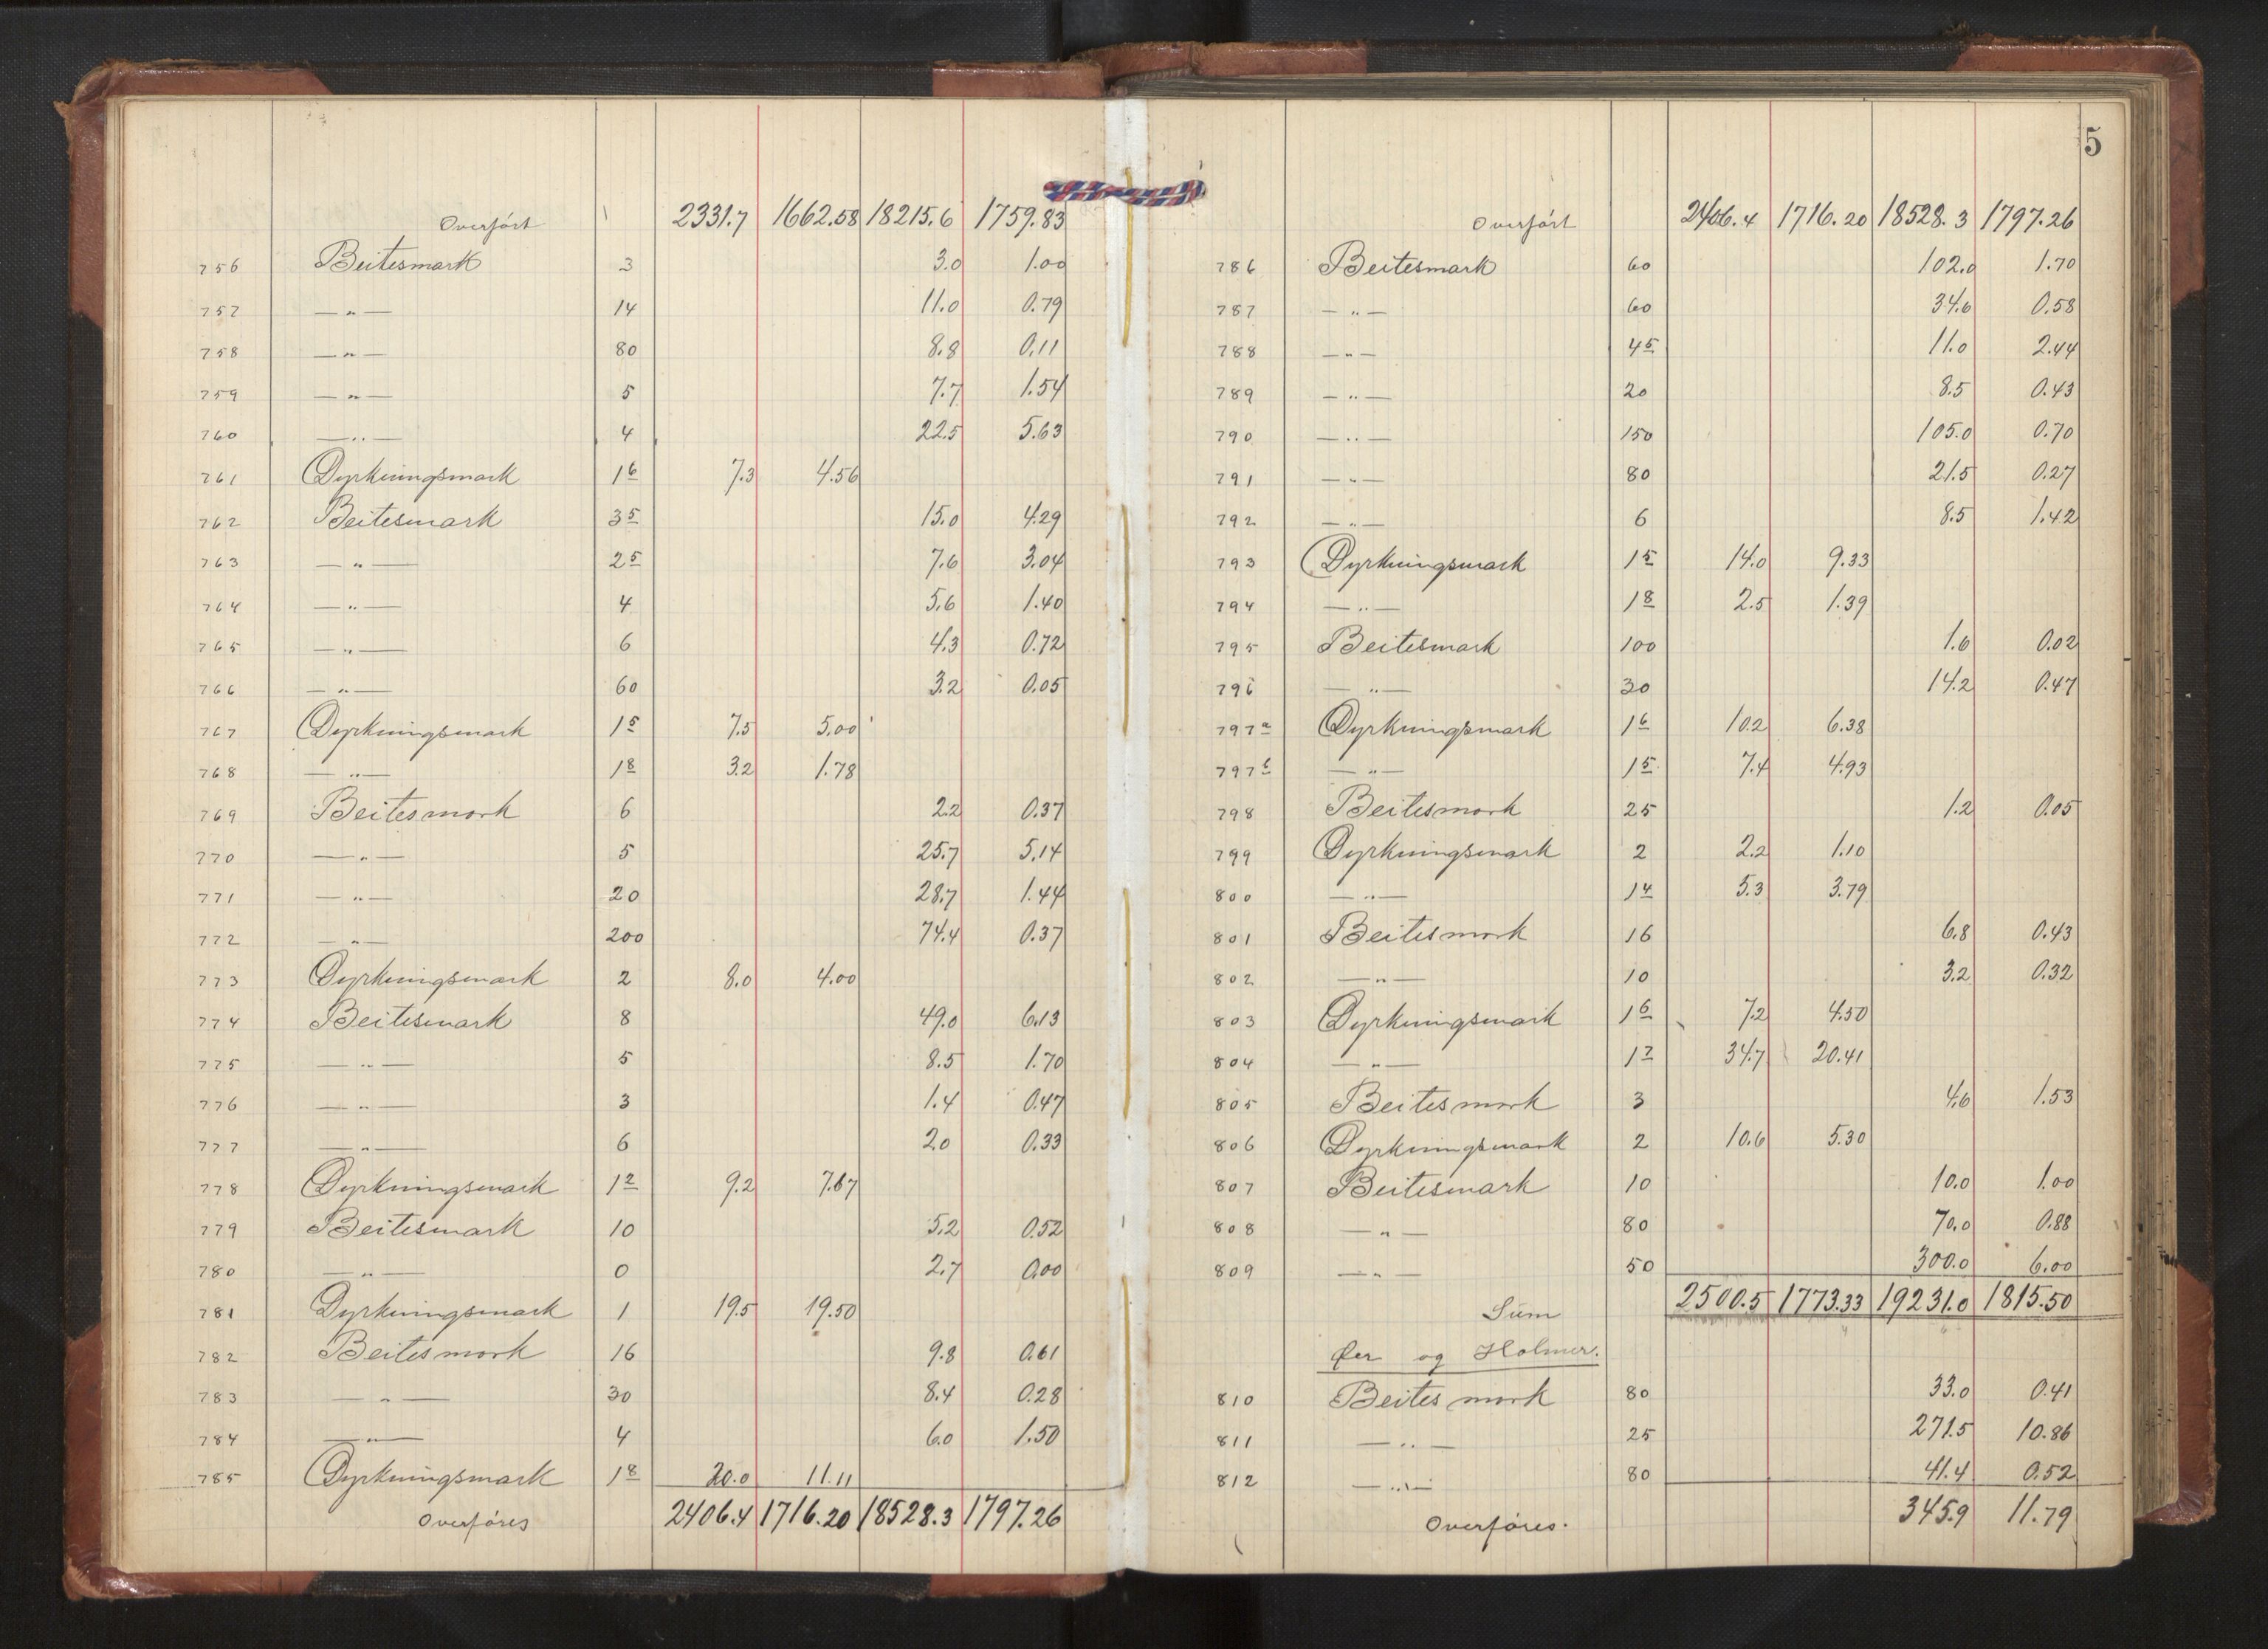 Overført 2331.7 1662.58 18215.6 1759.83
756 Beitesmark 3 3.0 1.00
757 — „ — 14 11.0 0.79
758 — „ — 80 8.8 0.11
759 — „ — 5 7.7 1.54
760 — „ — 4 22.5 5.63
761 Dyrkningsmark 1 6 7.3 4.56
762 Beitesmark 3 5 15.0 4.29
763 — „ — 2 5 7.6 3.04
764 — „ — 4 5.6 1.40
765 — „ — 6 4.3 0.72
766 — „ — 60 3.2 0.05
767 Dyrkningsmark 1 5 7.5 5.00
768 — „ — 1 8 3.2 1.78
769 Beitesmark 6 2.2 0.37
770 — „ — 5 25.7 5.14
771 — „ — 20 28.7 1.44
772 — „ — 200 74.4 0.37
773 Dyrkningsmark 2 8.0 4.00
774 Beitesmark 8 49.0 6.13
775 — „ — 5 8.5 1.70
776 — „ — 3 1.4 0.47
777 — „ — 6 2.0 0.33
778 Dyrkningsmark 1 2 9.2 7.67
779 Beitesmark 10 5.2 0.52
780 — „ — 0 2.7 0.00
781 Dyrkningsmark 1 19.5 19.50
782 Beitesmark 16 9.8 0.61
783 — „ — 30 8.4 0.28
784 — „ — 4 6.0 1.50
785 Dyrkningsmark 1 8 20.0 11.11
Overføres 2406.4 1716.20 18528.3 1797.26
5
Overført 2406.4 1716.20 18528.3 1797.26
786 Beitesmark 60 102.0 1.70
787 — „ — 60 34.6 0.58
788 — „ — 4 5 11.0 2.44
789 — „ — 20 8.5 0.43
790 — „ — 150 105.0 0.70
791 — „ — 80 21.5 0.27
792 — „ — 6 8.5 1.42
793 Dyrkningsmark 1 5 14.0 9.33
794 — „ — 1 8 2.5 1.39
795 Beitesmark 100 1.6 0.02
796 — „ — 30 14.2 0.47
797 a Dyrkningsmark 1 6 10.2 6.38
797 b — „ — 1 5 7.4 4.93
798 Beitesmark 25 1.2 0.05
799 Dyrkningsmark 2 2.2 1.10
800 — „ — 1 4 5.3 3.79
801 Beitesmark 16 6.8 0.43
802 — „ — 10 3.2 0.32
803 Dyrkningsmark 1 6 7.2 4.50
804 — „ — 1 7 34.7 20.41
805 Beitesmark 3 4.6 1.53
806 Dyrkningsmark 2 10.6 5.30
807 Beitesmark 10 10.0 1.00
808 — „ — 80 70.0 0.88
809 — „ — 50 300.0 6.00
Sum 2500.5 1773.33 19231.0 1815.50
Øer og Holmer.
810 Beitesmark 80 33.0 0.41
811 — „ — 25 271.5 10.86
812 — „ — 80 41.4 0.52
Overføres. 345.9 11.79